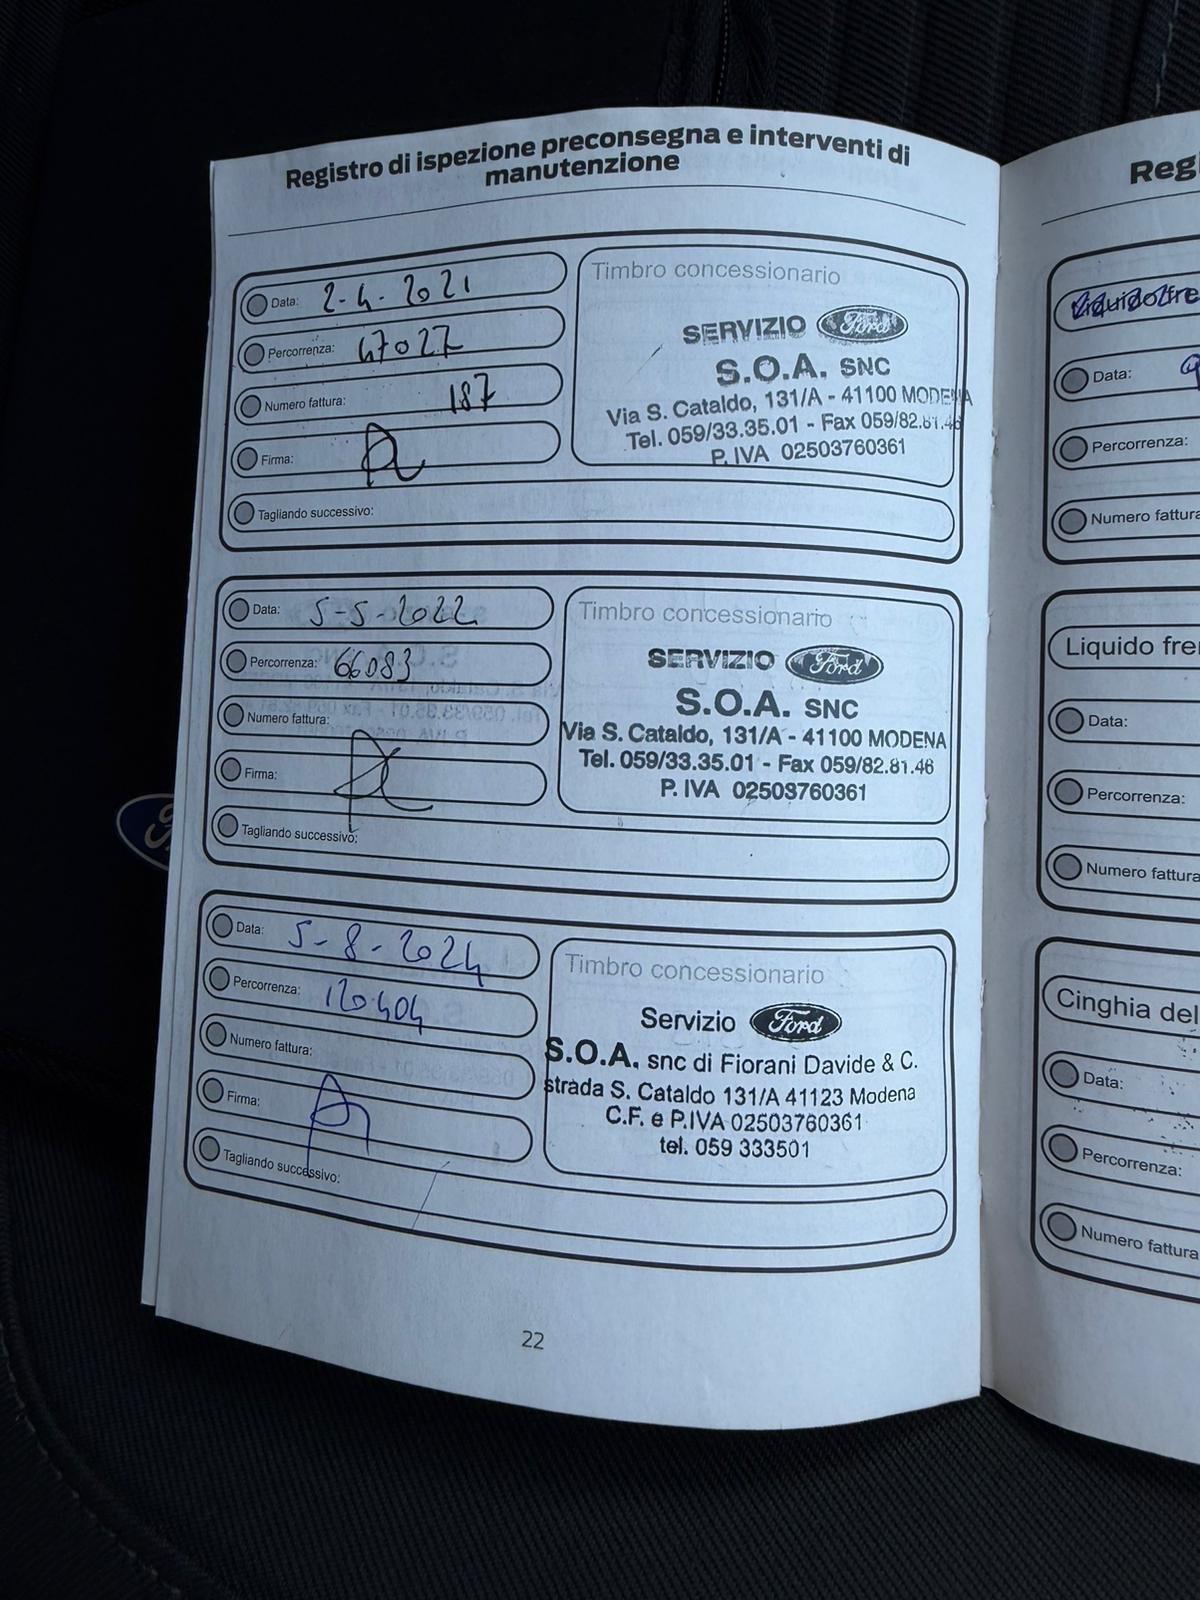 Registro di ispezione preconsegna e interventi di
manutenzione
Data: 2-4-2021
Percorrenza: 47027
Numero fattura: 187
Firma:
Tagliando successivo:
Timbro concessionario
SERVIZIO Ford
S.O.A. SNC
Via S. Cataldo, 131/A - 41100 MODENA
Tel. 059/33.35.01 - Fax 059/82.81.46
P. IVA 02503760361
Data: 5-5-2022
Percorrenza: 66083
Numero fattura:
Firma:
Tagliando successivo:
Timbro concessionario
SERVIZIO Ford
S.O.A. SNC
Via S. Cataldo, 131/A - 41100 MODENA
Tel. 059/33.35.01 - Fax 059/82.81.46
P. IVA 02503760361
Data: 5-8-2024
Percorrenza: 120404
Numero fattura:
Firma:
Tagliando successivo:
Timbro concessionario
Servizio Ford
S.O.A. snc di Fiorani Davide & C.
strada S. Cataldo 131/A 41123 Modena
C.F. e P.IVA 02503760361
tel. 059 333501
22
Reg
Data:
Percorrenza:
Numero fattura
Liquido fre
Data:
Percorrenza:
Numero fattura
Cinghia del
Data:
Percorrenza:
Numero fattura